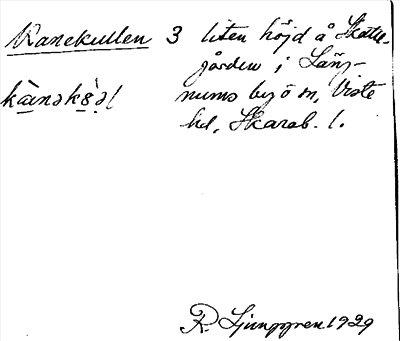 Kanekullen 3 liten höjd å Skatte-
gården i Läng-
kànəkꞷ̀əl nums by ö m, Viste
hd, Skarab. l.
R. Ljunggren 1929